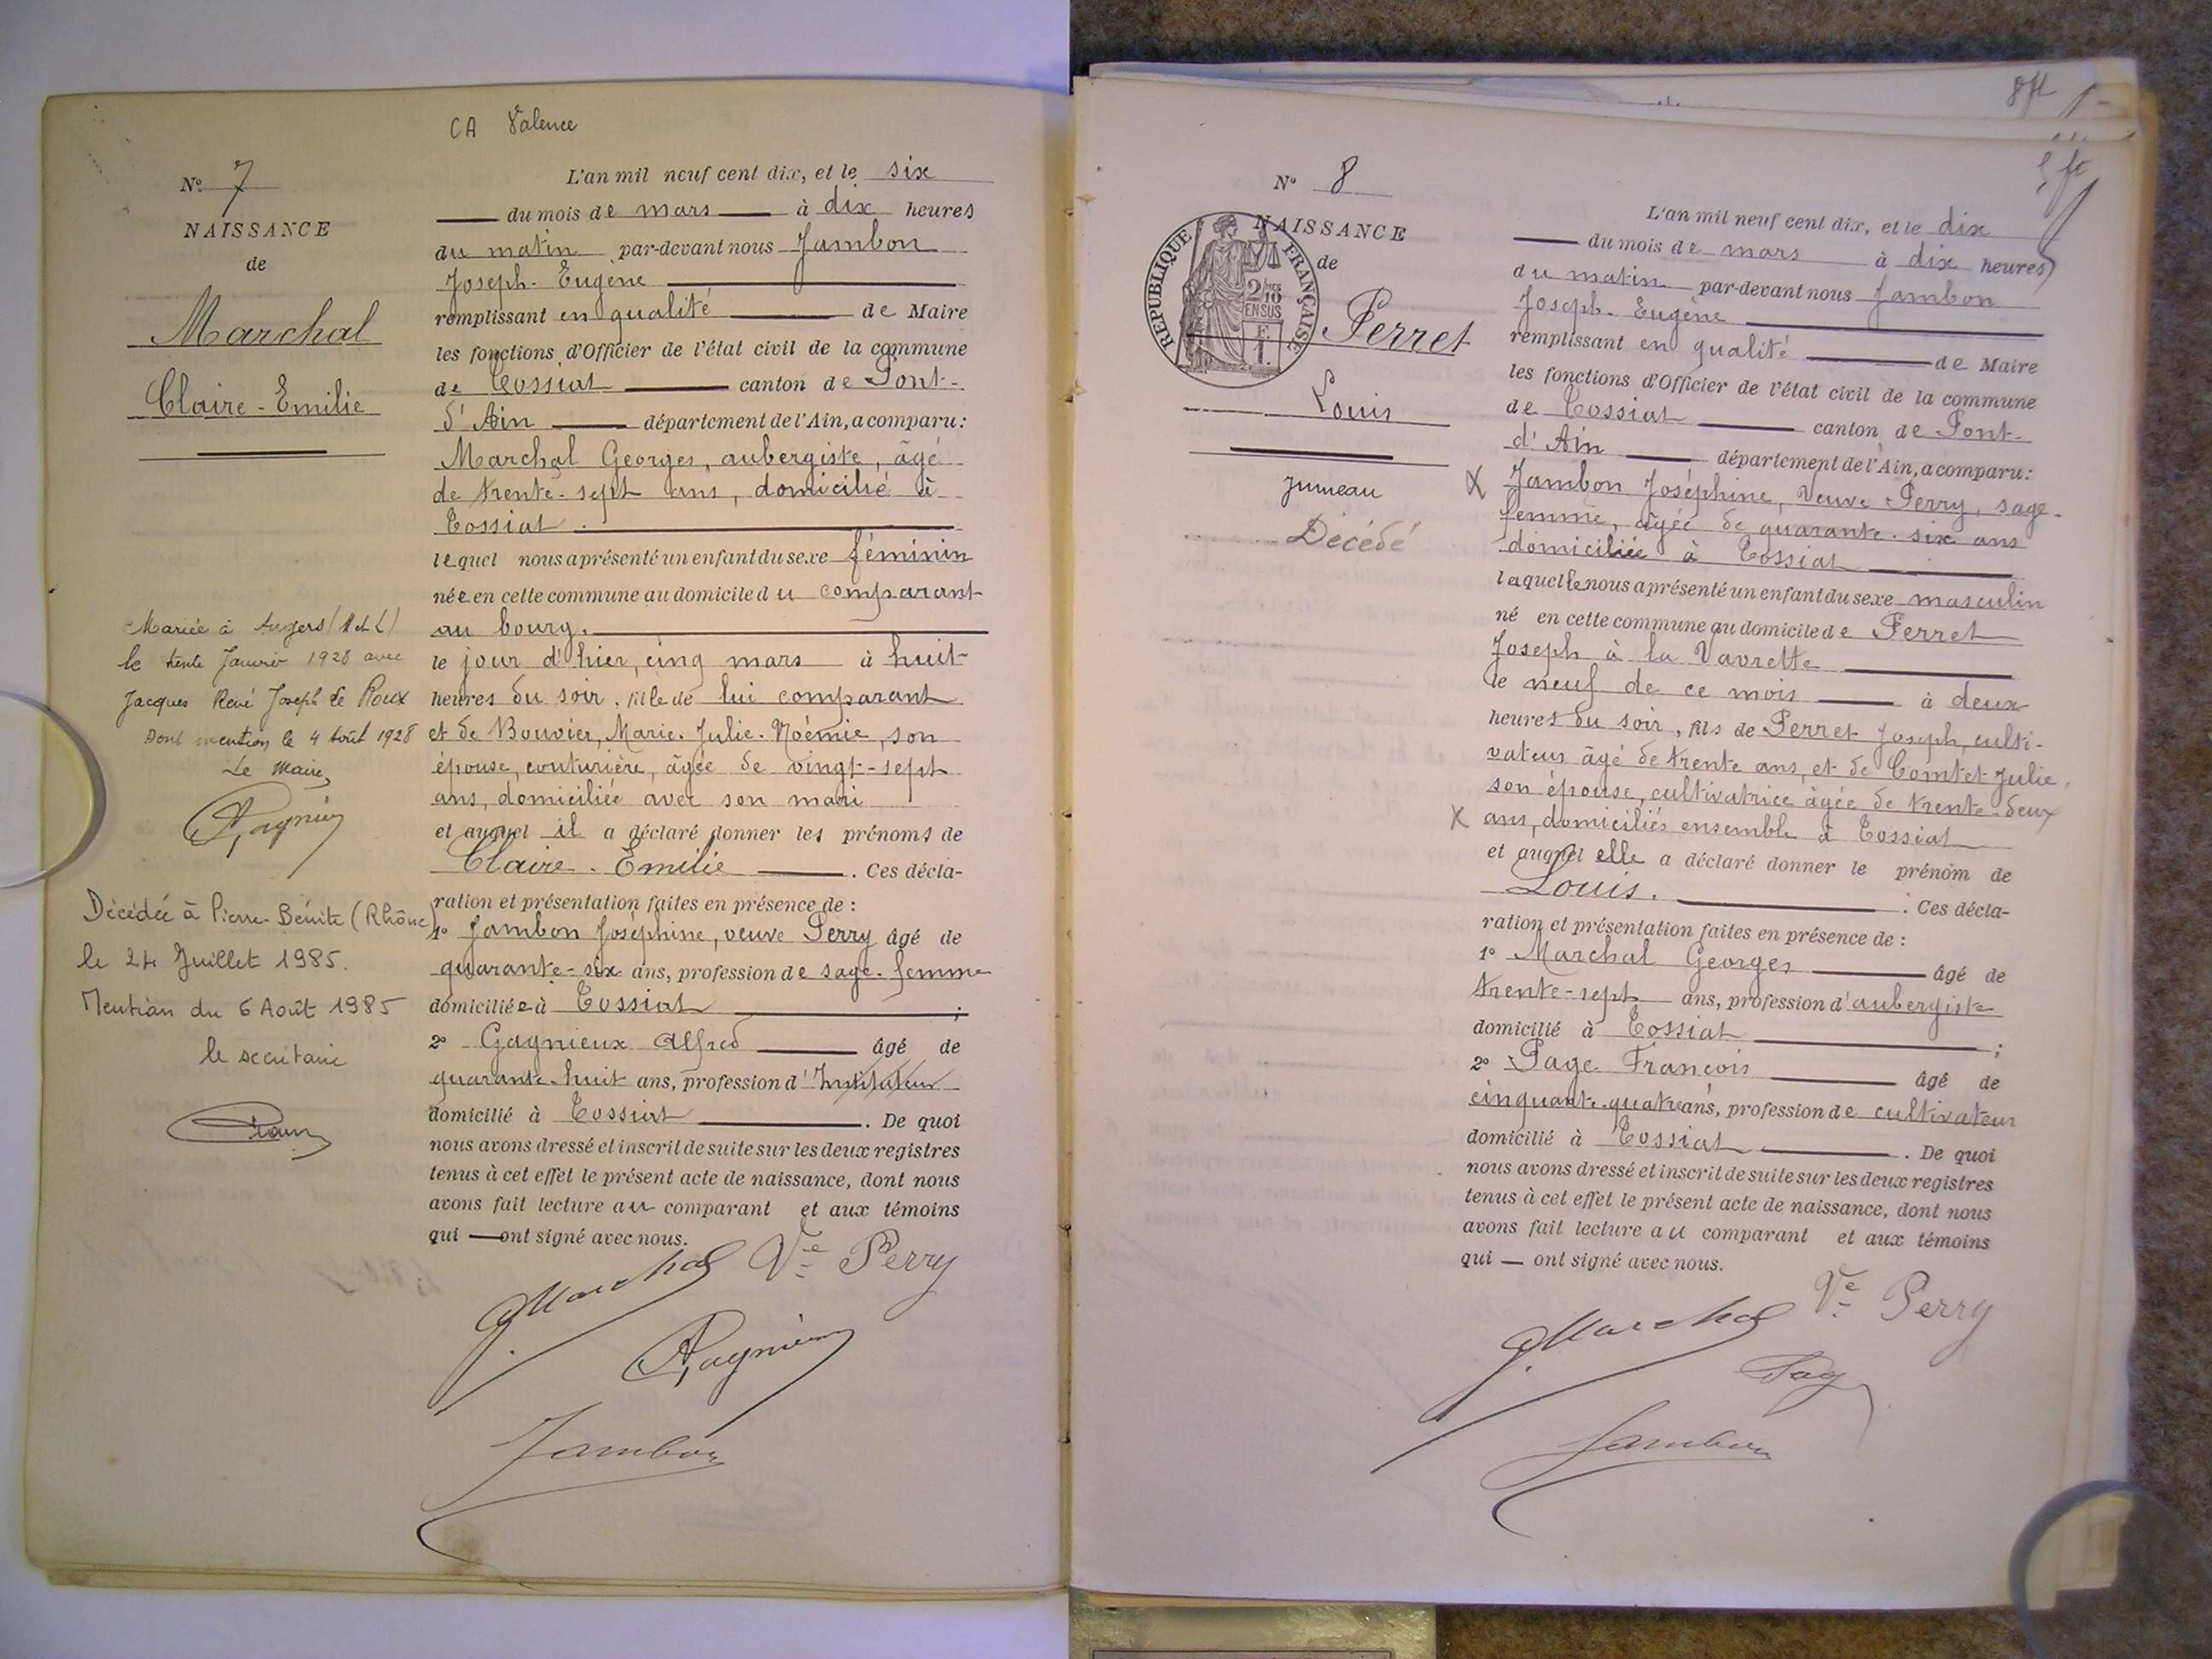 CA Valence
N° 7
NAISSANCE
de
Marchal
Claire - Emilie
L'an mil neuf cent dix, et le six
du mois de mars à dix heures
du matin par-devant nous Jambon
Joseph - Eugène
remplissant en qualité de Maire
les fonctions d'Officier de l'état civil de la commune
de Tossiat canton de Pont-
d'Ain département de l'Ain, a comparu:
Marchal Georges, aubergiste, âgé
de trente-sept ans, domicilié à
Tossiat.
lequel nous a présenté un enfant du sexe féminin
née en cette commune au domicile du comparant
au bourg.
le jour d'hier, cinq mars à huit
heures du soir, fille de lui comparant
et de Bouvier, Marie-Julie-Noémie, son
épouse, couturière, âgée de vingt-sept
ans, domiciliée avec son mari
et auquel il a déclaré donner les prénoms de
Claire - Emilie. Ces décla-
ration et présentation faites en présence de :
1° Jambon Joséphine, veuve Perry âgé de
quarante-six ans, profession de sage-femme
domiciliée à Tossiat ;
2° Gagnieux Alfred âgé de
quarante-huit ans, profession d'Instituteur
domicilié à Tossiat. De quoi
nous avons dressé et inscrit de suite sur les deux registres
tenus à cet effet le présent acte de naissance, dont nous
avons fait lecture au comparant et aux témoins
qui ont signé avec nous.
GMarchal Ve Perry
AGagnieux
Jambon
Mariée à Angers (M et L)
le trente Janvier 1928 avec
Jacques René Joseph Le Roux
Dont mention le 4 Août 1928
Le Maire,
AGagnieux
Décédée à Pierre-Bénite (Rhône)
le 24 Juillet 1985.
Mention du 6 Août 1985
le secrétaire
8 ft
9 ft
N° 8
NAISSANCE
de
REPUBLIQUE FRANÇAISE
2/10 EN SUS
Perret
Louis
jumeau
Décédé
L'an mil neuf cent dix, et le dix
du mois de mars à dix heures
du matin par-devant nous Jambon
Joseph - Eugène
remplissant en qualité de Maire
les fonctions d'Officier de l'état civil de la commune
de Tossiat canton de Pont-
d'Ain département de l'Ain, a comparu:
X Jambon Joséphine, Veuve Perry, sage-
femme, âgée de quarante-six ans
domiciliée à Tossiat
laquelle nous a présenté un enfant du sexe masculin
né en cette commune au domicile de Perret
Joseph à la Vavrette
le neuf de ce mois à deux
heures du soir, fils de Perret Joseph, culti-
vateur âgé de trente ans, et de Comtet Julie,
son épouse, cultivatrice âgée de trente-deux
X ans, domiciliés ensemble à Tossiat
et auquel elle a déclaré donner le prénom de
Louis. Ces décla-
ration et présentation faites en présence de :
1° Marchal Georges âgé de
trente-sept ans, profession d'aubergiste
domicilié à Tossiat ;
2° Page François âgé de
cinquante-quatre ans, profession de cultivateur
domicilié à Tossiat. De quoi
nous avons dressé et inscrit de suite sur les deux registres
tenus à cet effet le présent acte de naissance, dont nous
avons fait lecture au comparant et aux témoins
qui ont signé avec nous.
GMarchal Ve Perry
Page
Jambon